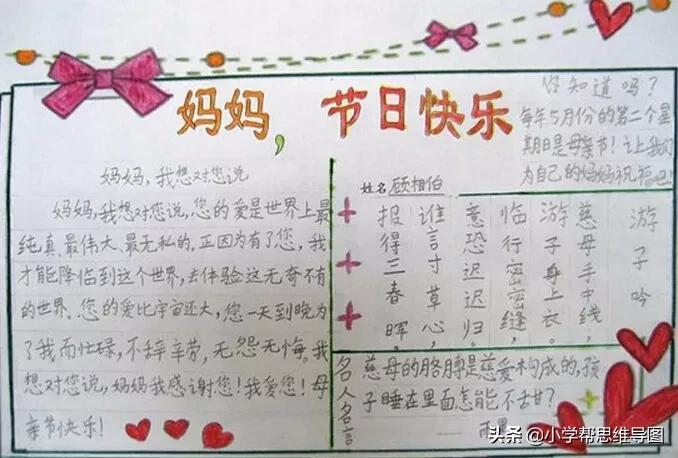 妈妈，节日快乐
你知道吗？
每年5月份的第二个星
期日是母亲节！让我们
为自己的妈妈祝福吧！
妈妈，我想对您说
妈妈，我想对您说，您的爱是世界上最
纯真、最伟大、最无私的。正因为有了您，我
才能降临到这个世界，去体验这无奇不有
的世界、您的爱比宇宙还大，您一天到晚为
了我而忙碌，不辞辛劳，无怨无悔。我
想对您说，妈妈我感谢您！我爱您！母
亲节快乐！
姓名 顾相伯
游子吟
慈母手中线，
游子身上衣。
临行密密缝，
意恐迟迟归。
谁言寸草心，
报得三春晖。
名人名言
慈母的胳膊是慈爱构成的，孩
子睡在里面怎能不甘？
雨果
头条 @小学帮思维导图